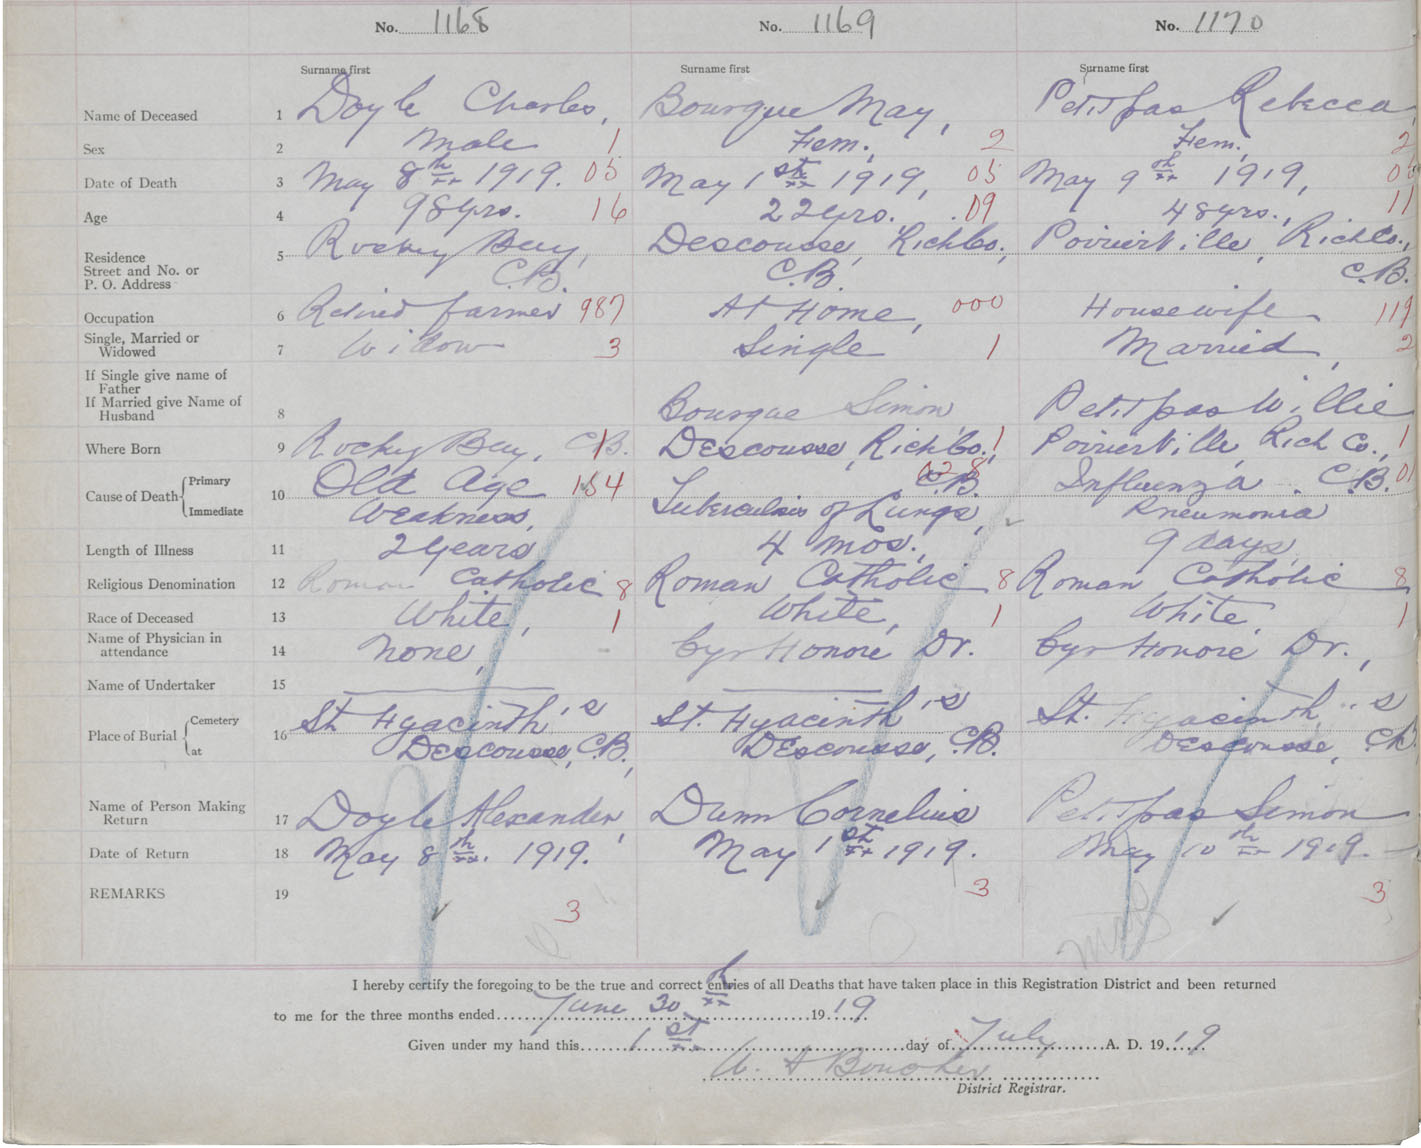 No. 1168 No. 1169 No. 1170
Surname first Surname first Surname first
Name of Deceased 1 Doyle Charles, Bourque May, Petitpas Rebecca,
Sex 2 Male 1 Fem., 2 Fem., 2
Date of Death 3 May 8th 1919. 05 May 1st 1919, 05 May 9th 1919, 05
Age 4 98 yrs. 16 22 yrs. 09 48 yrs., 11
Residence
Street and No. or
P. O. Address
5 Rocky Bay, Descousse, Rich Co., Poirierville, Rich Co.,
C.B. C.B. C.B.
Occupation 6 Retired farmer 987 At Home, 000 Housewife 119
Single, Married or
Widowed
7 Widow 3 Single 1 Married, 2
If Single give name of
Father
If Married give Name of
Husband
8 Bourque Simon Petitpas Willie
Where Born 9 Rocky Bay, C.B. 1 Descousse, Rich Co., 1 Poirierville, Rich Co., 1
Cause of Death Primary 10 Old Age 154 028 C.B. Influenza C.B. 01
Immediate Weakness, Tuberculsis of Lungs, Pneumonia
Length of Illness 11 2 years 4 mos., 9 days,
Religious Denomination 12 Roman Catholic 8 Roman Catholic 8 Roman Catholic 8
Race of Deceased 13 White, 1 White, 1 White, 1
Name of Physician in
attendance
14 None, Cyr Honoré Dr. Cyr Honoré Dr.,
Name of Undertaker 15
Place of Burial Cemetery 16 St. Hyacinth's St. Hyacinth's St. Hyacinth's
at Descousse, C.B., Descousse, C.B. Descousse, C.B.
Name of Person Making
Return
17 Doyle Alexander, Dunn Cornelius Petitpas Simon
Date of Return 18 May 8th 1919. May 1st 1919. May 10th 1919.
REMARKS 19 3 3 3
I hereby certify the foregoing to be the true and correct entries of all Deaths that have taken place in this Registration District and been returned
to me for the three months ended June 30th 1919
Given under my hand this 1st day of July A. D. 1919
District Registrar.